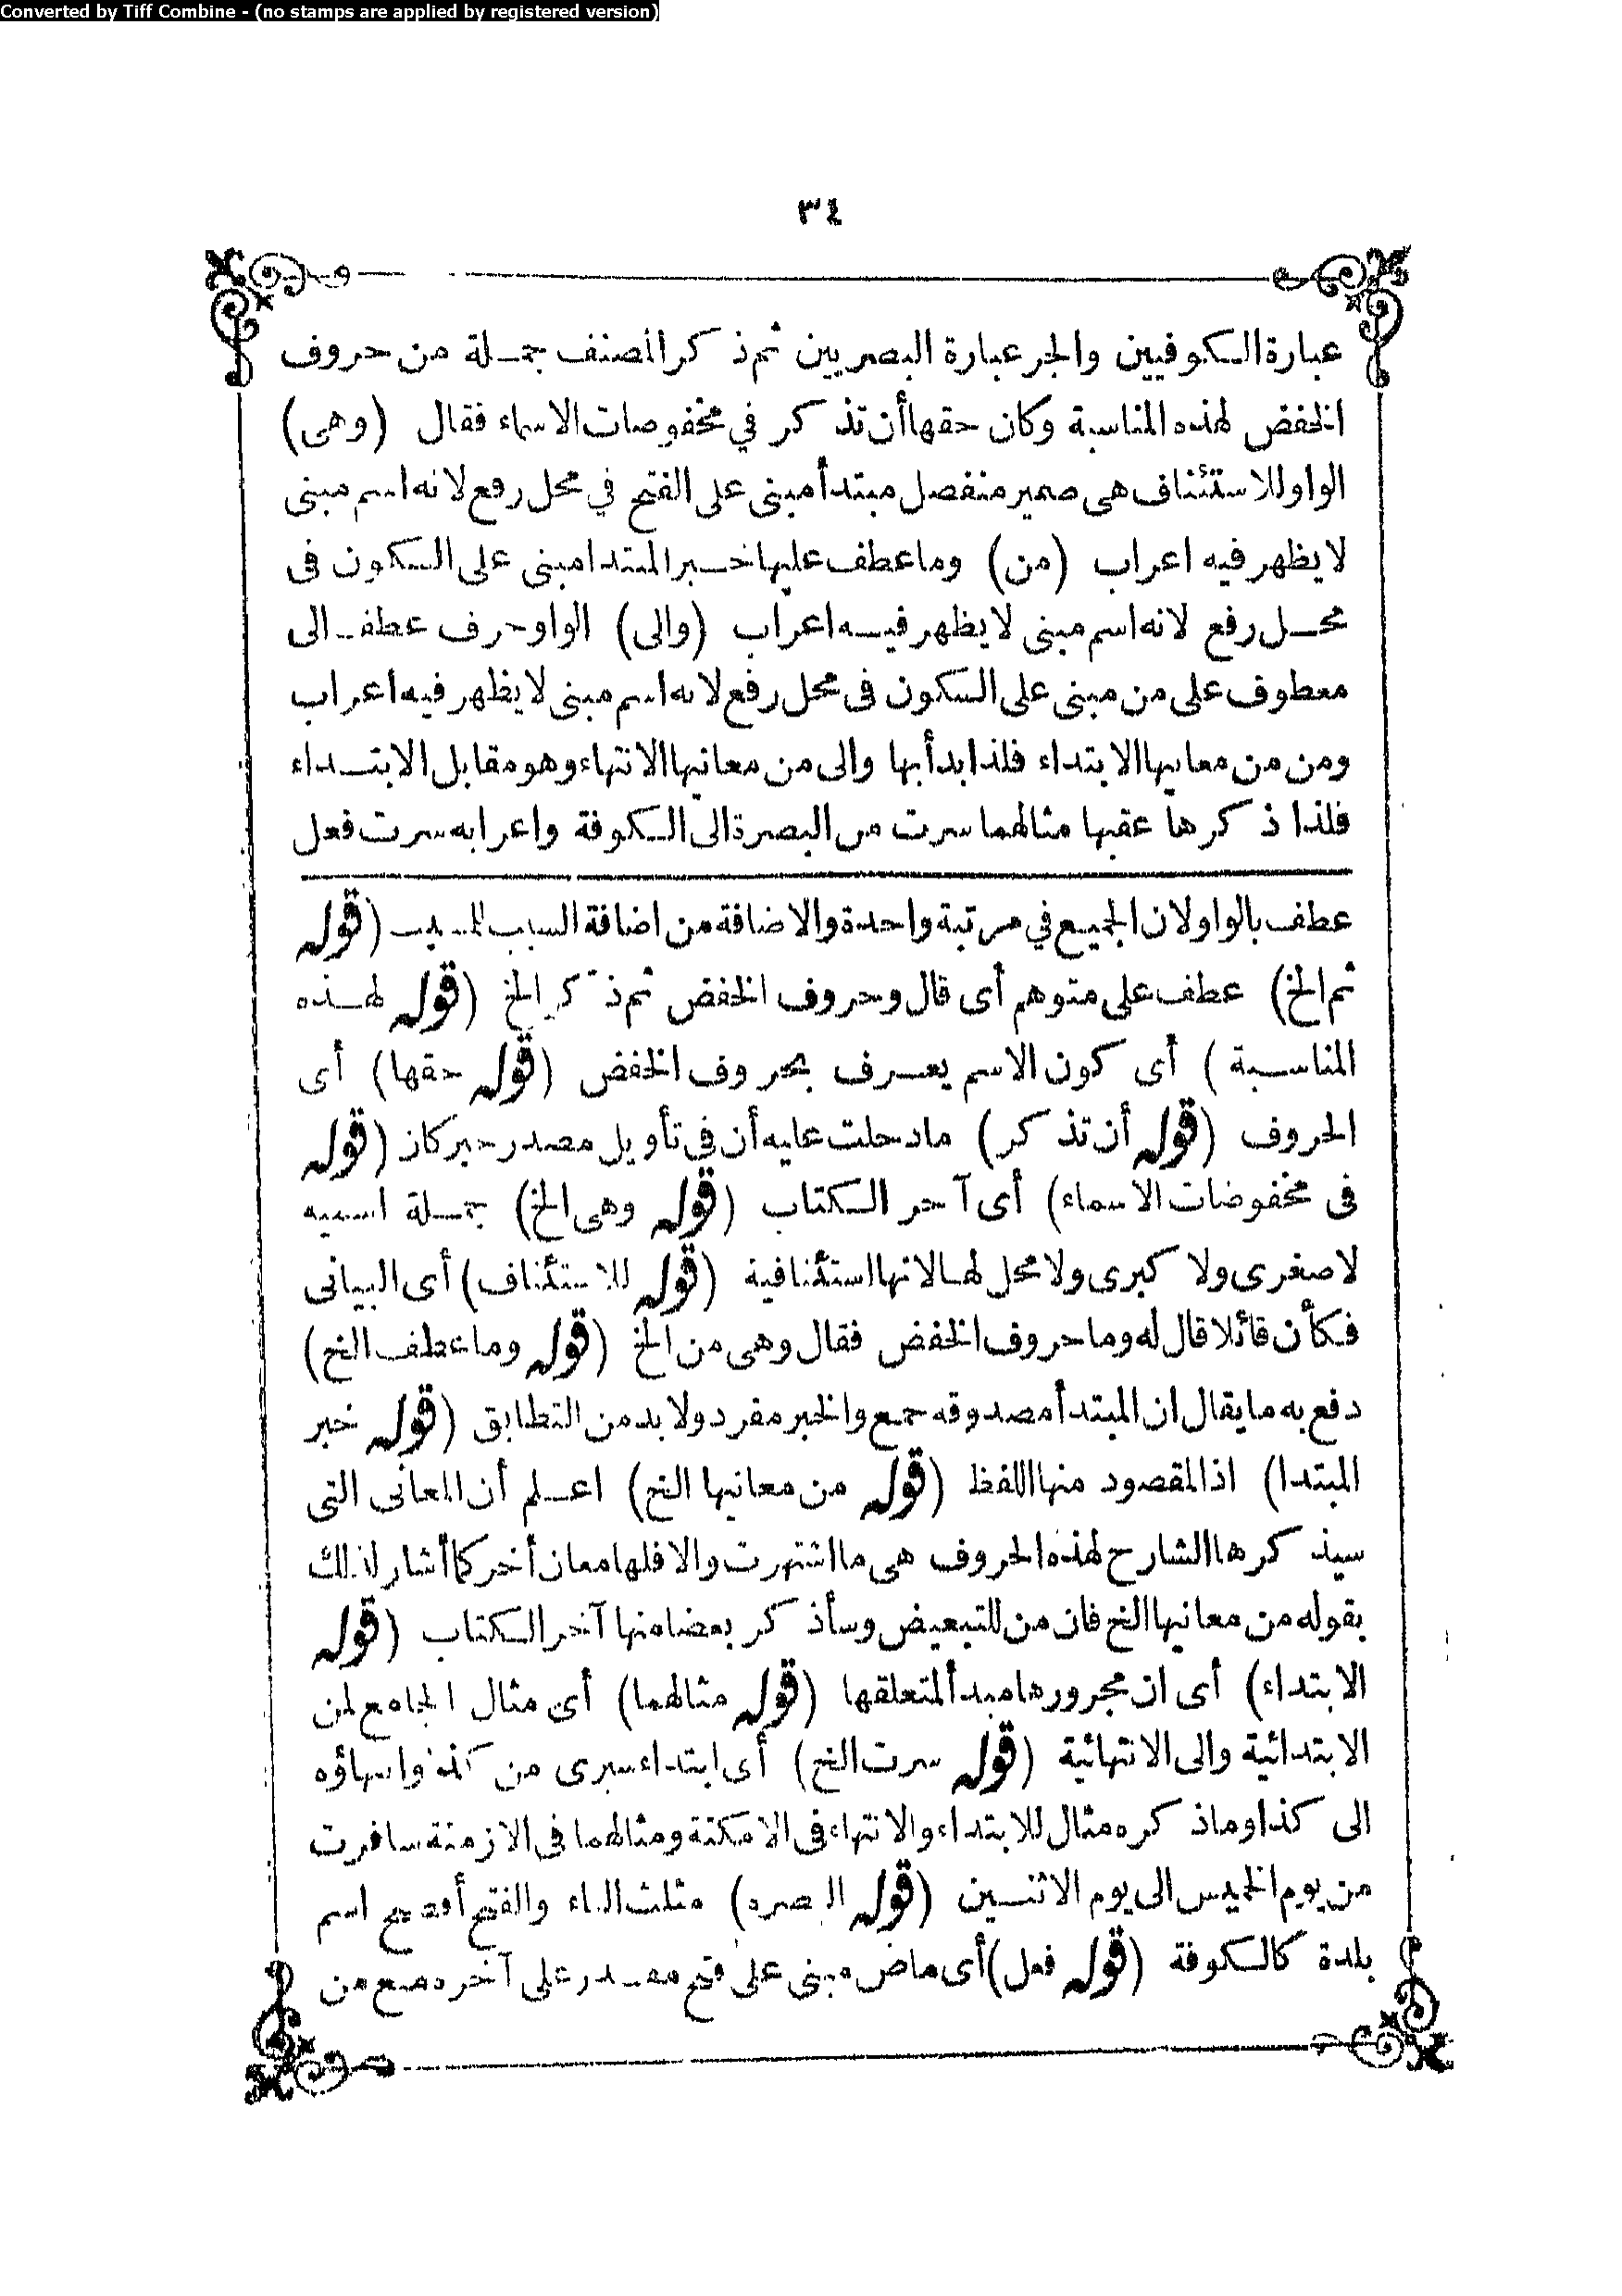 Converted by Tiff Combine - (no stamps are applied by registered version)
٣٤
عبارة الكوفيين والجر عبارة البصريين ثم ذكر المصنف جملة من حروف
الخفض لهذه المناسبة وكان حقها أن تذكر في مخفوضات الاسماء فقال (وهى)
الواو للاستئناف هى ضمير منفصل مبتدأ مبنى على الفتح في محل رفع لانه اسم مبنى
لا يظهر فيه اعراب (من) وما عطف عليها خبر المبتدا مبنى على السكون فى
محل رفع لانه اسم مبنى لا يظهر فيه اعراب (والى) الواو حرف عطف الى
معطوف على من مبنى على السكون فى محل رفع لانه اسم مبنى لا يظهر فيه اعراب
ومن من معانيها الابتداء فلذا بدأ بها والى من معانيها الانتهاء وهو مقابل الابتداء
فلذا ذكرها عقبها مثالهما سرت من البصرة الى الكوفة واعرابه سرت فعل
عطف بالواو لان الجميع في مرتبة واحدة والاضافة من اضافة السبب للمسبب (قوله
ثم الخ) عطف على متوهم أى قال وحروف الخفض ثم ذكر الخ (قوله لهذه
المناسبة) أى كون الاسم يعرف بحروف الخفض (قوله حقها) أى
الحروف (قوله أن تذكر) مادخلت عليه أن فى تأويل مصدر خبر كان (قوله
فى مخفوضات الاسماء) أى آخر الكتاب (قوله وهى الخ) جملة اسمية
لا صغرى ولا كبرى ولا محل لها لانها استئنافية (قوله للاستئناف) أى البيانى
فكأن قائلا قال له وما حروف الخفض فقال وهى من الخ (قوله وما عطف الخ)
دفع به ما يقال ان المبتدأ مصدوقه جمع والخبر مفرد ولا بد من التطابق (قوله خبر
المبتدا) اذ المقصود منها اللفظ (قوله من معانيها الخ) اعلم أن المعانى التى
سيذكرها الشارح لهذه الحروف هى ما اشتهرت والا فلها معان أخر كما أشار لذلك
بقوله من معانيها الخ فان من للتبعيض وسأذكر بعضا منها آخر الكتاب (قوله
الابتداء) أى ان مجرورها مبدأ لمتعلقها (قوله مثالهما) أى مثال الجامع لمن
الابتدائية والى الانتهائية (قوله سرت الخ) أى ابتداء سيرى من كذا وانتهاؤه
الى كذا وماذكره مثال للابتداء والانتهاء فى الامكنة ومثالهما فى الازمنة سافرت
من يوم الخميس الى يوم الاثنين (قوله البصره) مثلث الباء والفتح أفصح اسم
بلدة كالكوفة (قوله فعل) أى ماض مبنى على فتح مقدر على آخره منع من